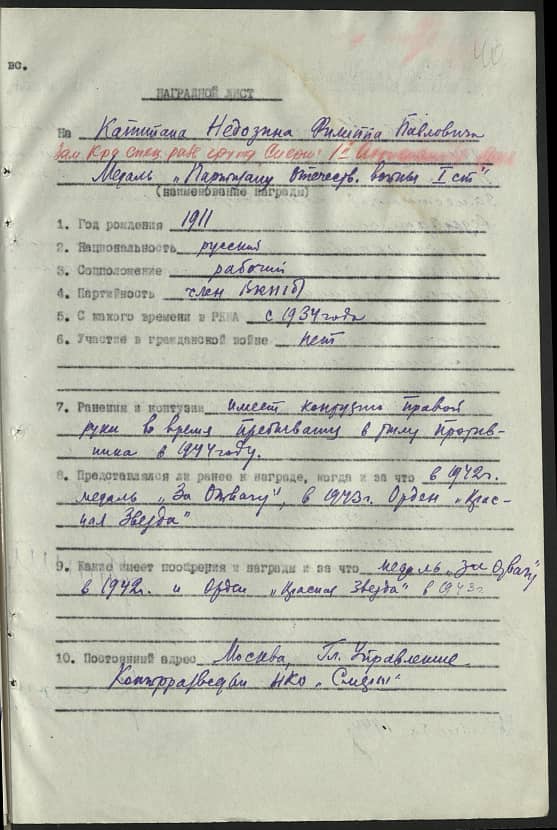 40
вс.
НАГРАДНОЙ ЛИСТ
На Капитана Недозина Филиппа Павловича
Медаль „Партизану отечеств. войны I ст"
(наименование награды)
1. Год рождения 1911
2. Национальность русский
3. Соцположение рабочий
4. Партийность член ВКП(б)
5. С какого времени в РККА с 1934 года
6. Участие в гражданской войне нет
7. Ранения и контузии имеет контузию правой
руки во время пребывания в тылу против-
ника в 1944 году.
8. Представлялся ли ранее к награде, когда и за что в 1942г.
медаль „За Отвагу", в 1943г. Орден „Крас-
ная Звезда"
9. Какие имеет поощрения и награды и за что медаль „За Отвагу"
в 1942г. и Орден „Красная Звезда" в 1943г
10. Постоянный адрес Москва, Гл. Управление
Контрразведки НКО „Смерш"